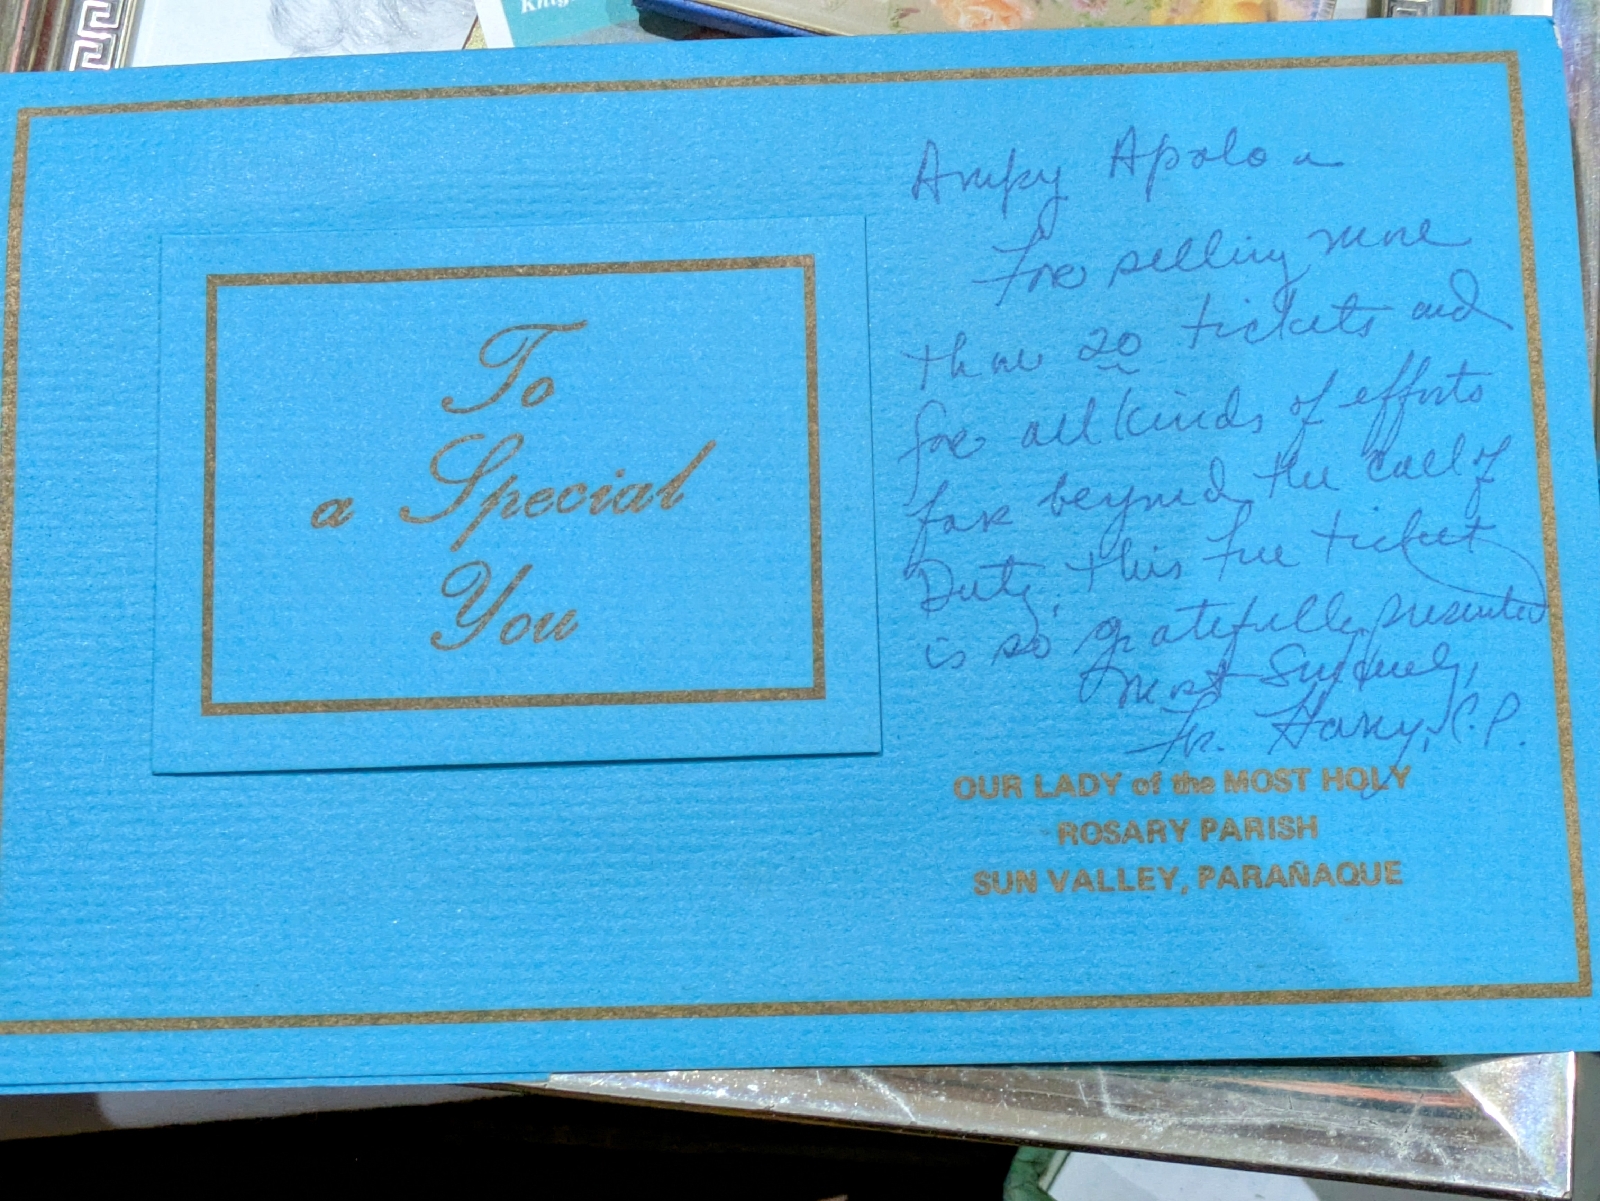 Knig
To
a Special
You
Apolo
For selling more
than 20 tickets and
for all kinds of efforts
far beyond the call of
Duty, this free ticket
is so gratefully presented
Most Sincerely,
Fr. Harry, C.P.
OUR LADY of the MOST HOLY
ROSARY PARISH
SUN VALLEY, PARAÑAQUE